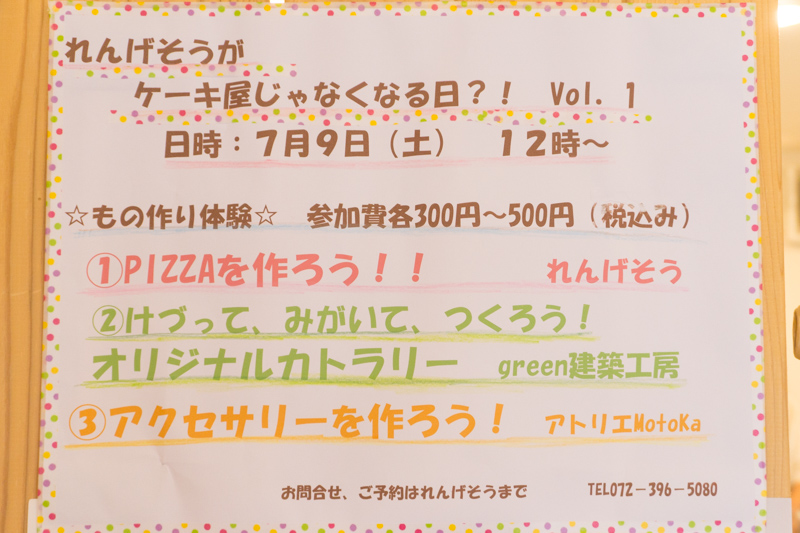 れんげそうが
ケーキ屋じゃなくなる日？！　Vol. 1
日時：７月９日（土）　１２時～
☆もの作り体験☆　参加費各300円～500円（税込み）
①PIZZAを作ろう！！　れんげそう
②けづって、みがいて、つくろう！
オリジナルカトラリー　green建築工房
③アクセサリーを作ろう！　アトリエMotoKa
お問合せ、ご予約はれんげそうまで　TEL072－396－5080